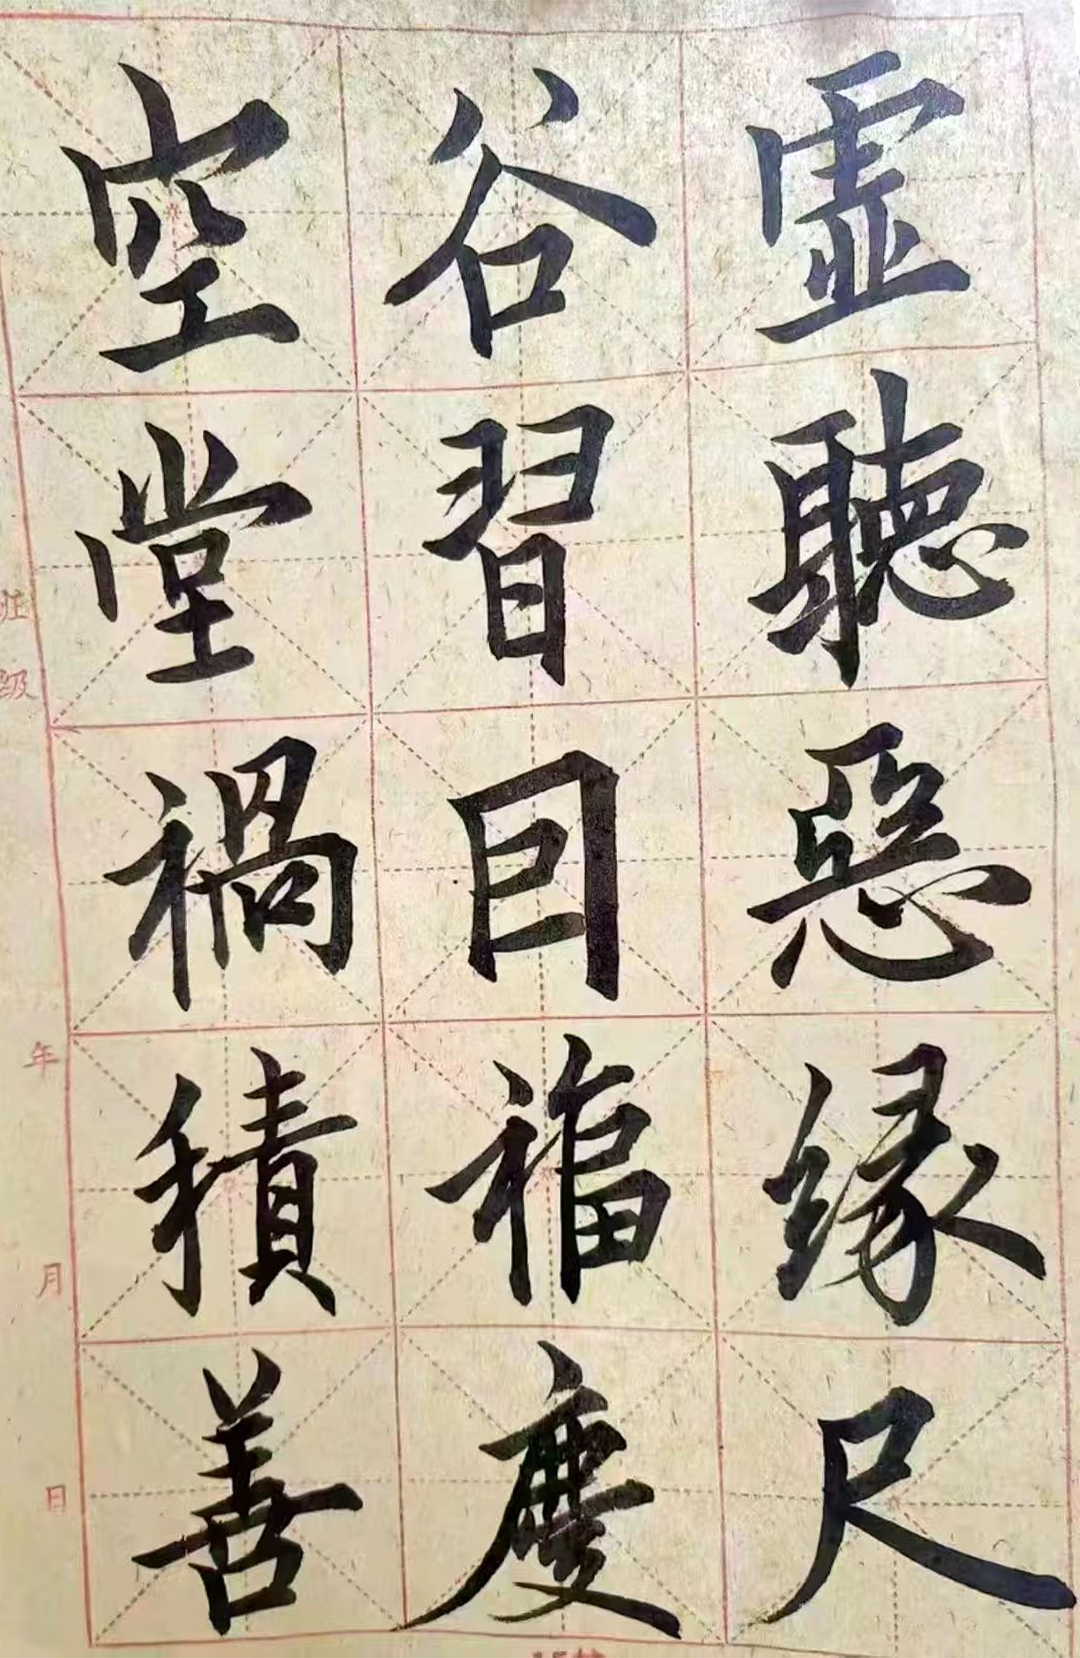 空谷虚
堂習聽
禍囙惡
積福緣
善慶尺
班级
年
月
日